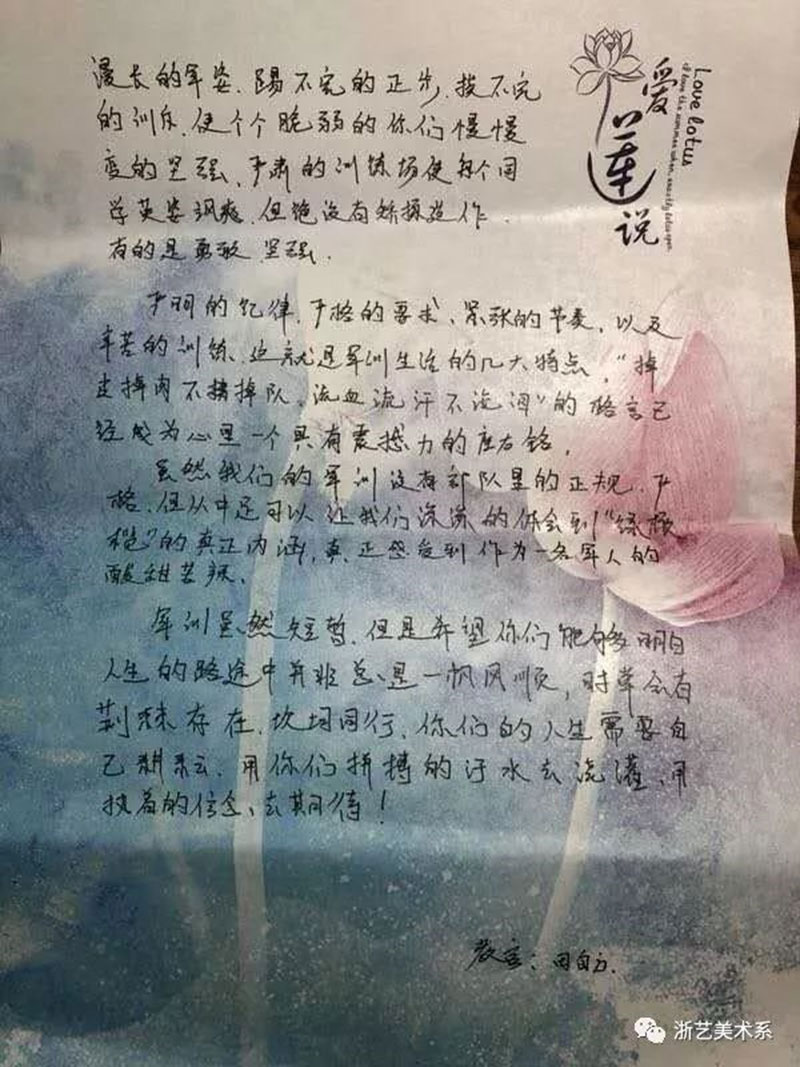 爱莲说
Love lotus
漫长的军姿、踢不完的正步、挨不完
的训斥、使个个脆弱的你们慢慢
变的坚强、严肃的训练场使每个同
学英姿飒爽、但绝没有矫揉造作、
有的是勇敢坚强.
严明的纪律、严格的要求、紧张的节奏,以及
辛苦的训练、这就是军训生活的几大特点,“掉
皮掉肉不掉队、流血流汗不流泪”的格言已
经成为心里一个具有震撼力的座右铭,
虽然我们的军训没有部队里的正规、严
格、但从中足可以让我们深深的体会到“绿橄
榄”的真正内涵,真正感受到作为一名军人的
酸甜苦辣、
军训虽然短暂、但是希望你们能够明白
人生的路途中并非总是一帆风顺,时常会有
荆棘存在、坎坷同行、你们的人生需要自
己耕耘、用你们拼搏的汗水去浇灌、用
执着的信念、去期待!
教官:田自力.
浙艺美术系